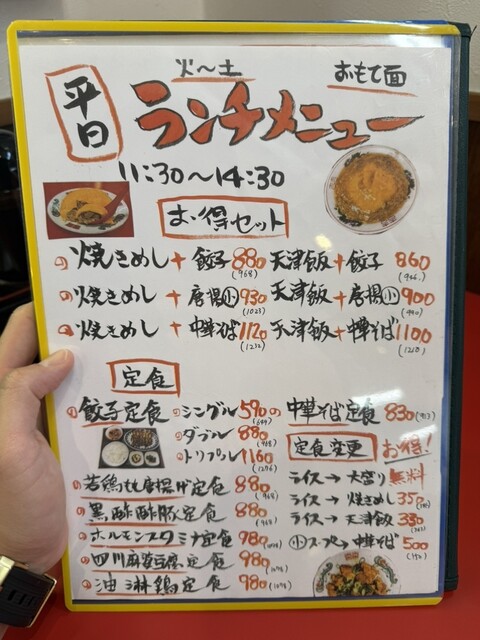 火〜土
おもて面
平日
ランチメニュー
11:30〜14:30
お得セット
焼きめし + 餃子 880 (968)
天津飯 + 餃子 860
焼きめし + 唐揚小 930 (1023)
天津飯 + 唐揚小 900 (990)
焼きめし + 中華そば 1120 (1232)
天津飯 + 中華そば 1100 (1210)
定食
餃子定食
シングル 590 (649)
ダブル 880 (968)
トリプル 1160 (1276)
若鶏もも唐揚げ定食 880 (968)
黒酢酢豚定食 880 (968)
ホルモンスタミナ定食 980 (1078)
四川麻婆豆腐定食 980 (1078)
油淋鶏定食 980 (1078)
中華そば定食 830 (913)
定食変更 お得!
ライス→大盛り 無料
ライス→焼きめし 350
ライス→天津飯 330 (363)
小スープ→中華そば 500